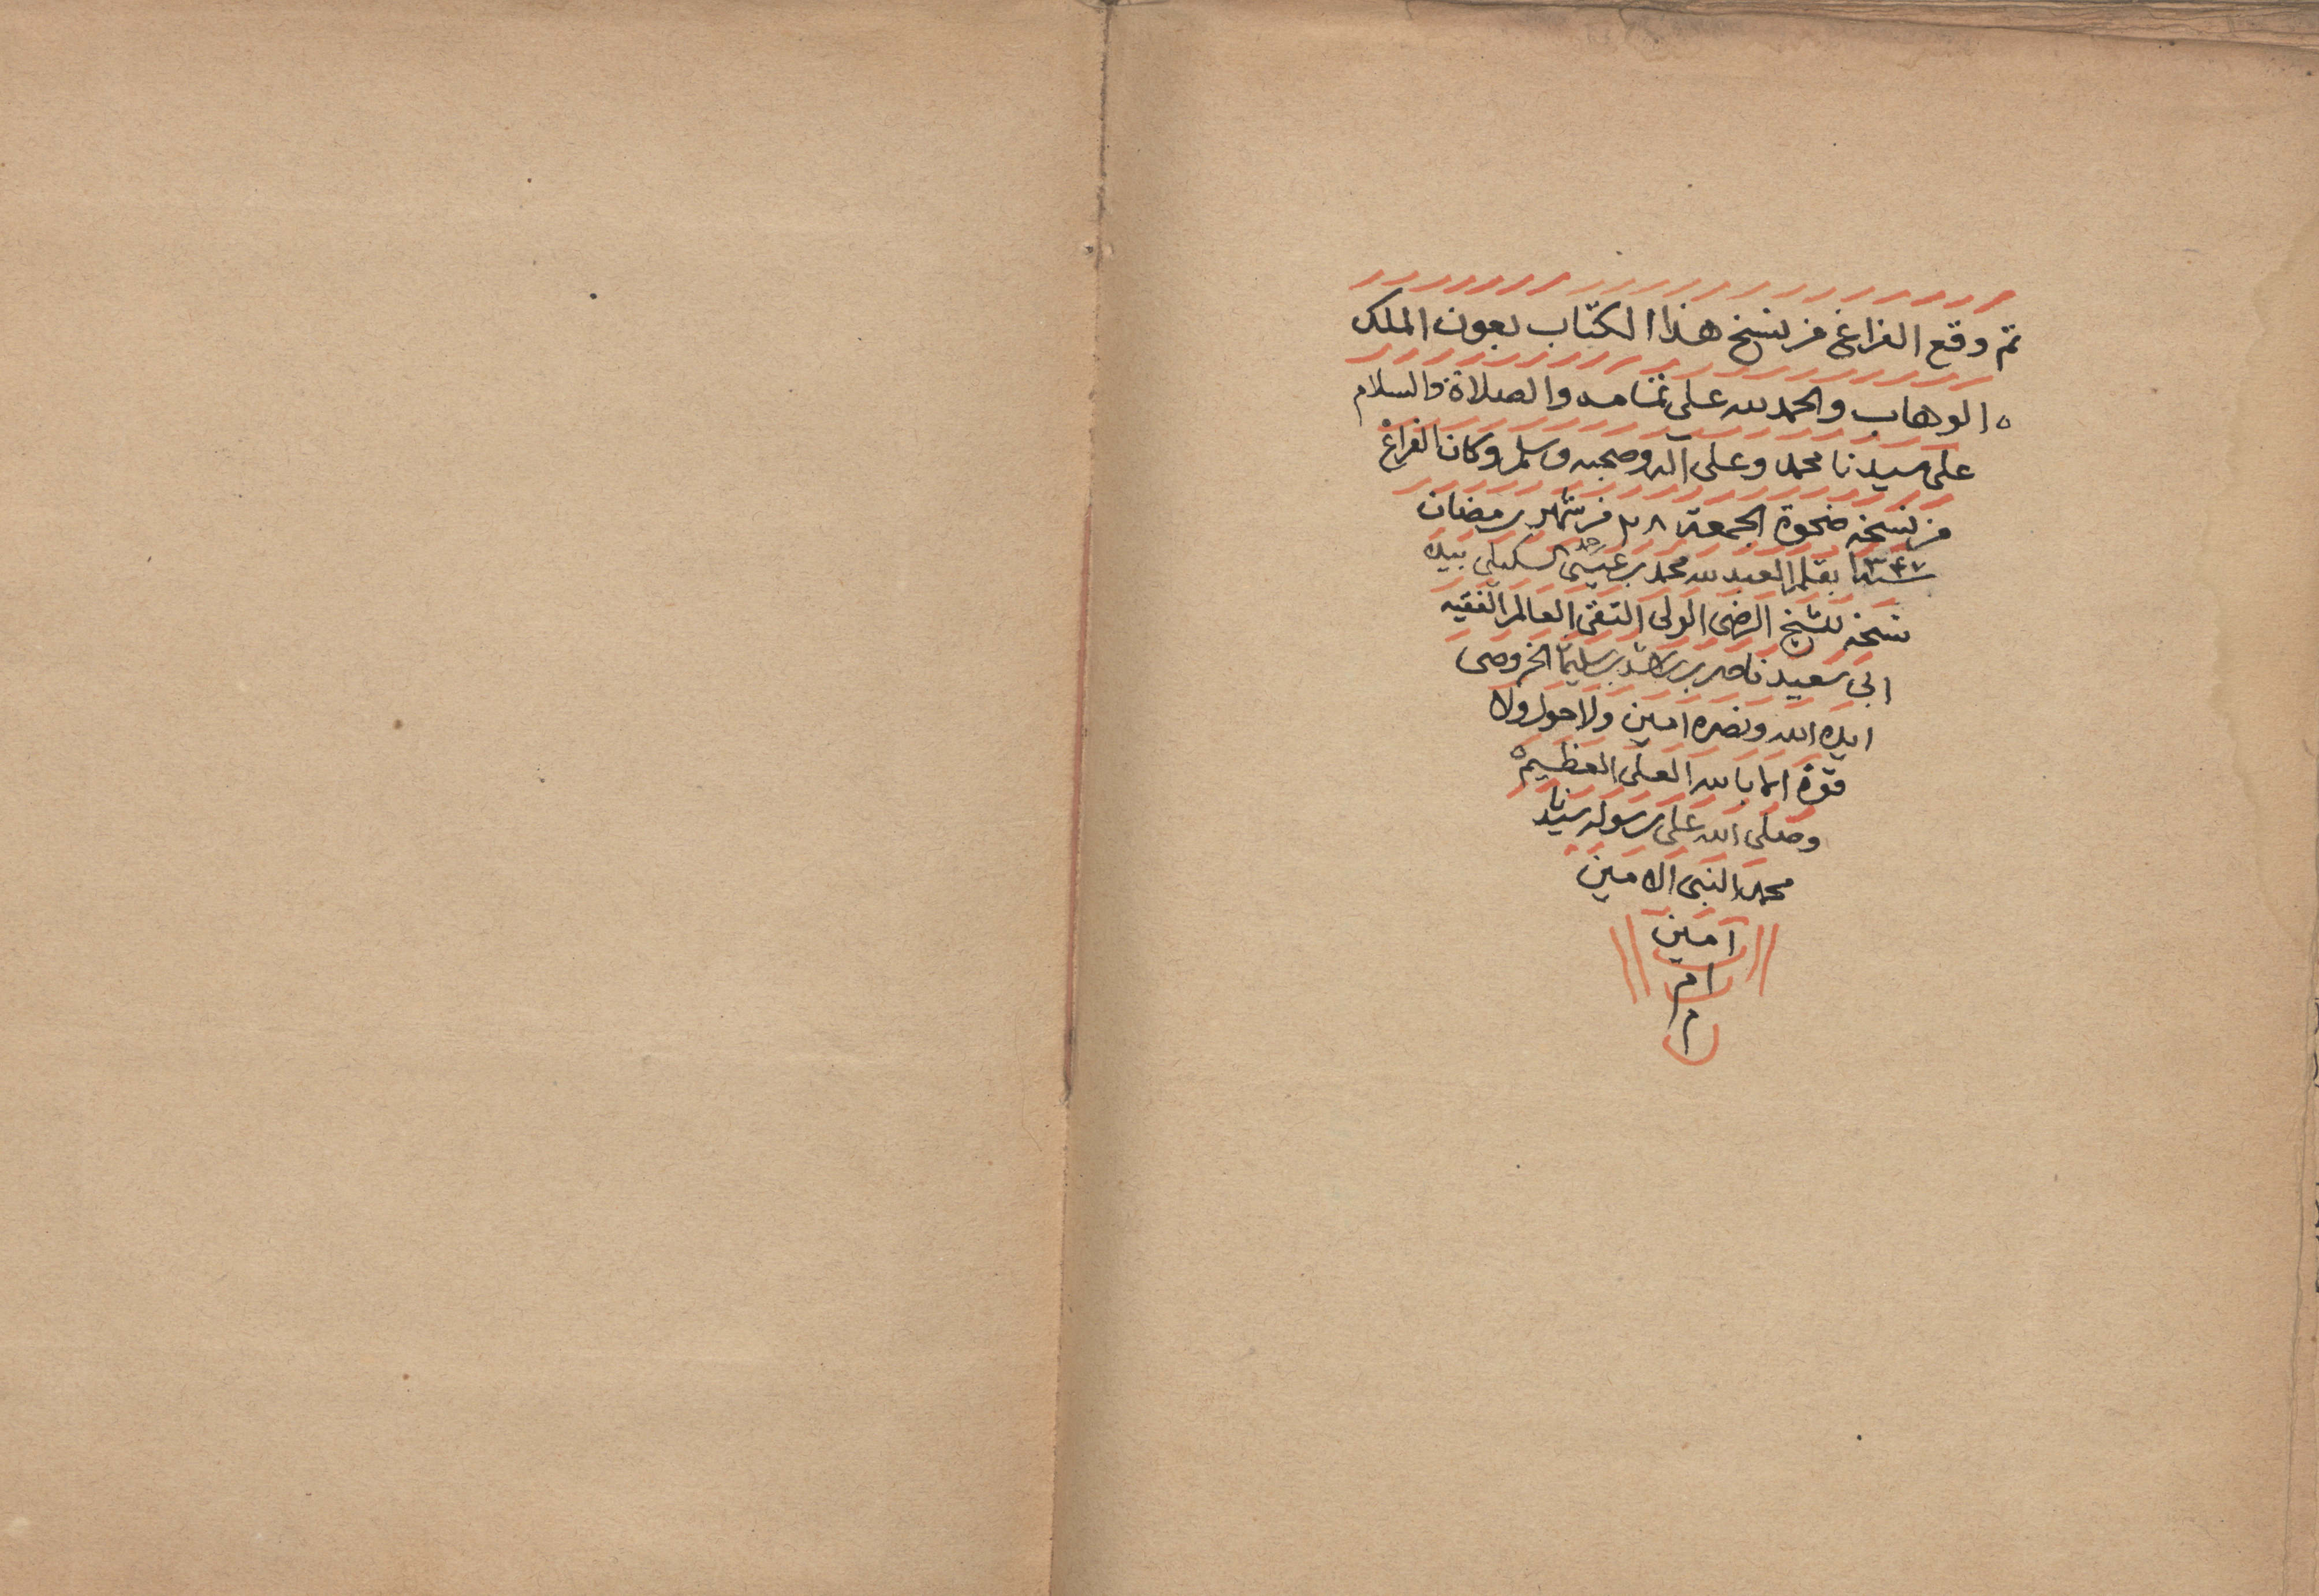 تم وقع الفراغ من نسخ هذا الكتاب بعون الملك
الوهاب والحمد لله على تمامه والصلاة والسلام
على سيدنا محمد وعلى آله وصحبه وسلم وكان الفراغ
من نسخه ضحوة الجمعة ٢٨ من شهر رمضان
سنة ١٣٤٧ بقلم العبد لله محمد بن عيسى بيده
نسخه للشيخ الرضي الولي التقي العالم الفقيه
ابي سعيد ناصر بن راشد بن سليمان الخروصي
ايده الله ونصره امين ولا حول ولا
قوة الا بالله العلي العظيم ه
وصلى الله على رسوله سيدنا
محمد النبي الامين
آمين
ام
م